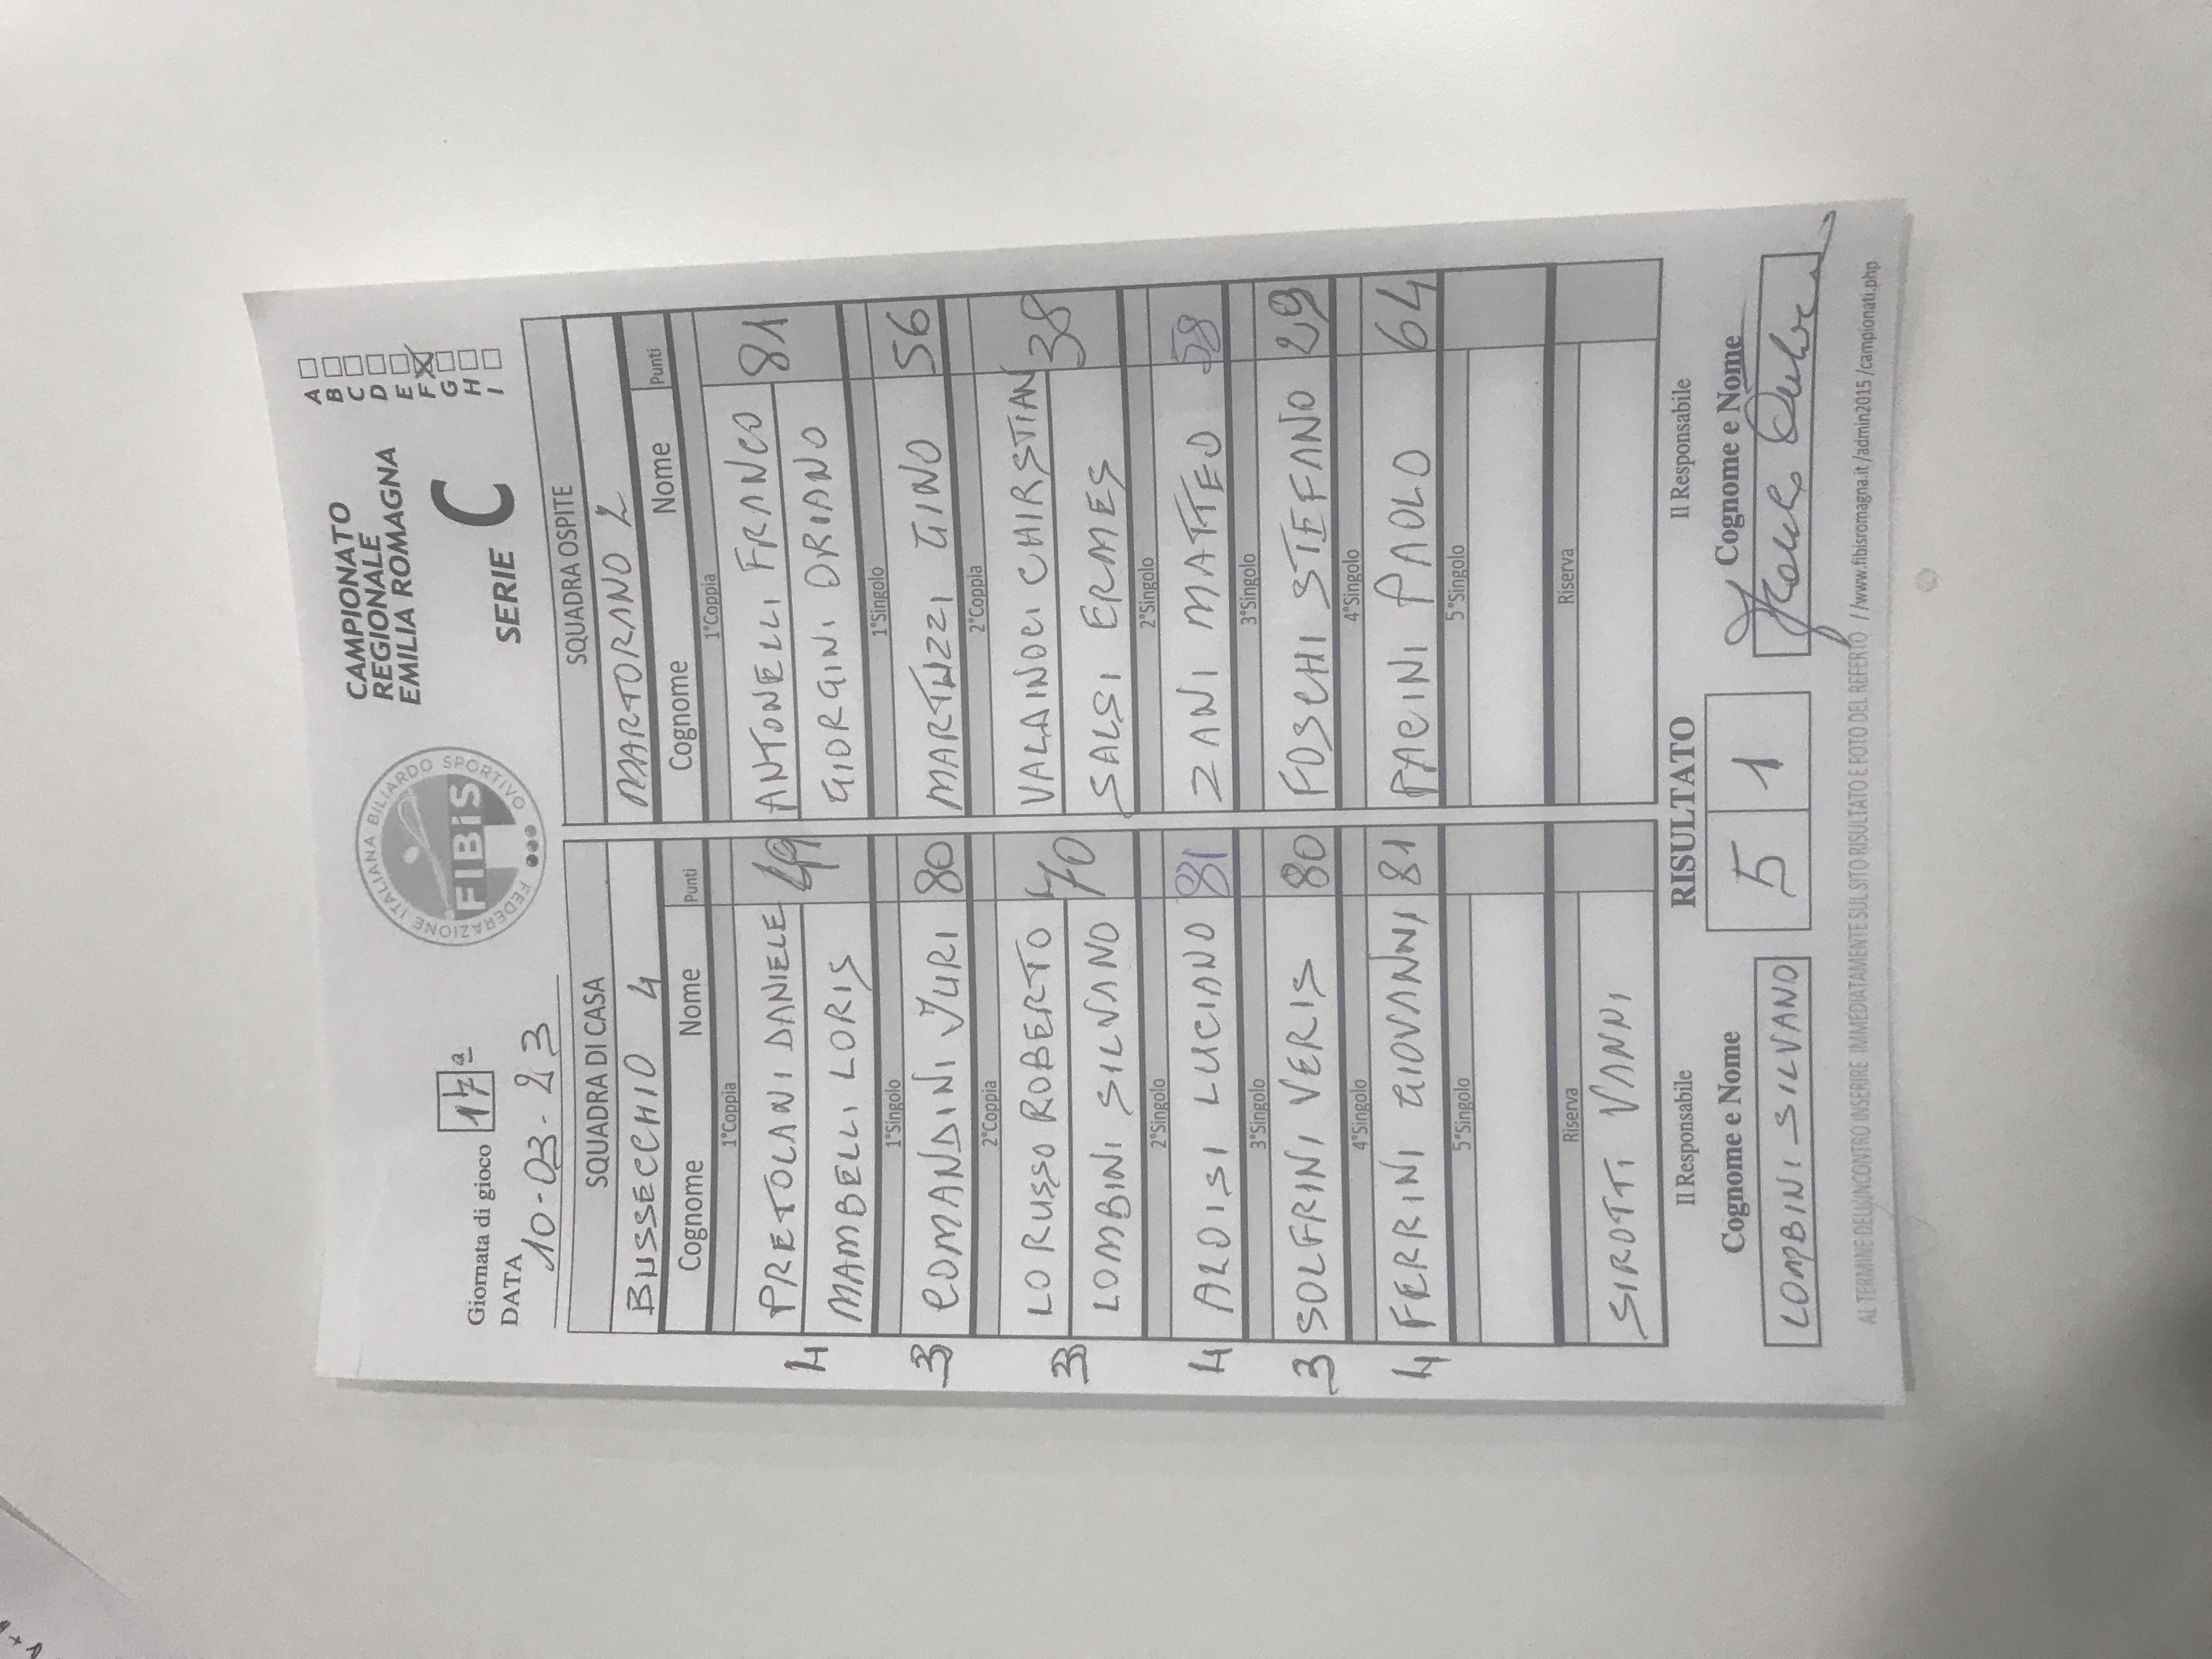 Giornata di gioco 17ª
DATA 10-03-23
FEDERAZIONE ITALIANA BILIARDO SPORTIVO
FIBiS
CAMPIONATO
REGIONALE
EMILIA ROMAGNA
SERIE C
A
B
C
D
E
F X
G
H
I
SQUADRA DI CASA SQUADRA OSPITE
BUSSECCHIO 4 MARTORANO 2
Cognome Nome Punti Cognome Nome Punti
1°Coppia 1°Coppia
4 PRETOLANI DANIELE 49 ANTONELLI FRANCO 81
MAMBELLI LORIS GIORGINI ORIANO
1°Singolo 1°Singolo
3 COMANDINI YURI 80 MARTUZZI GINO 56
2°Coppia 2°Coppia
3 LO RUSSO ROBERTO 70 VALAINOCI CHAIRSTIAN 38
LOMBINI SILVANO SALSI ERMES
2°Singolo 2°Singolo
4 ALOISI LUCIANO 81 ZANI MATTEO 58
3°Singolo 3°Singolo
3 SOLFRINI VERIS 80 FOSCHI STEFANO 29
4°Singolo 4°Singolo
4 FERRINI GIOVANNI 81 PACINI PAOLO 64
5°Singolo 5°Singolo
Riserva Riserva
SIROTTI VANNI
Il Responsabile RISULTATO Il Responsabile
Cognome e Nome 5 1 Cognome e Nome
LOMBINI SILVANO
AL TERMINE DELL'INCONTRO INSERIRE IMMEDIATAMENTE SUL SITO RISULTATO E FOTO DEL REFERTO //www.fibisromagna.it/admin2015/campionati.php